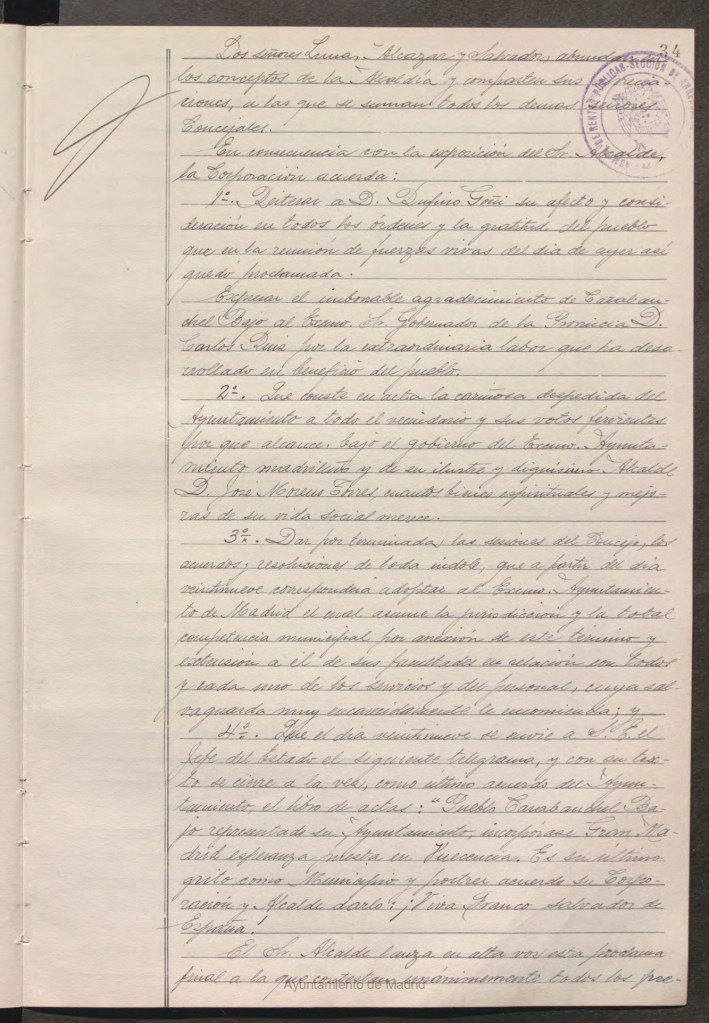 34
Los señores Lunas, Alcazar y Salvador, abundan en
los conceptos de la Alcaldía y comparten sus aprecia-
ciones, a las que se suman todos los demas señores
Concejales.
En consecuencia con la exposición del Sr. Alcalde,
la Corporación acuerda:
1º. Reiterar a D. Rufino Goñi su afecto y consi-
deración en todos los órdenes y la gratitud del pueblo
que en la reunión de fuerzas vivas del dia de ayer así
quedó proclamada.
Expresar el imborrable agradecimiento de Caraban-
chel Bajo al Excmo. Sr. Gobernador de la Provincia D.
Carlos Ruiz por la extraordinaria labor que ha desa-
rrollado en beneficio del pueblo.
2º. Que conste en acta la cariñosa despedida del
Ayuntamiento a todo el vecindario y sus votos fervientes
por que alcance, bajo el gobierno del Excmo. Ayunta-
miento madrileño y de su ilustre y dignísimo Alcalde
D. José Moreno Torres, cuantos bienes espirituales y mejo-
ras de su vida social merece.
3º. Dar por terminadas las sesiones del Concejo, los
acuerdos y resoluciones de toda indole, que a partir del dia
veintinueve corresponderá adoptar al Excmo. Ayuntamien-
to de Madrid el cual asume la jurisdicción y la total
competencia municipal por anexión de este termino y
extensión a él de sus facultades en relación con todos
y cada uno de los servicios y del personal, cuya sal-
vaguarda muy encarecidamente le encomienda; y
4º. Que el dia veintinueve se envie a S. E. el
Jefe del Estado el siguiente telegrama, y con su tex-
to se cierre a la vez, como último acuerdo del Ayun-
tamiento, el libro de actas: "Pueblo Carabanchel Ba-
jo representado su Ayuntamiento, incorpórase Gran Ma-
drid esperanza puesta en Vuecencia. Es su último
grito como Municipio y postrer acuerdo su Corpo-
ración y Alcalde darlo: ¡Viva Franco salvador de
España!
El Sr. Alcalde lanza en alta voz esta proclama
final a la que contestan unánimemente todos los pre-
Ayuntamiento de Madrid